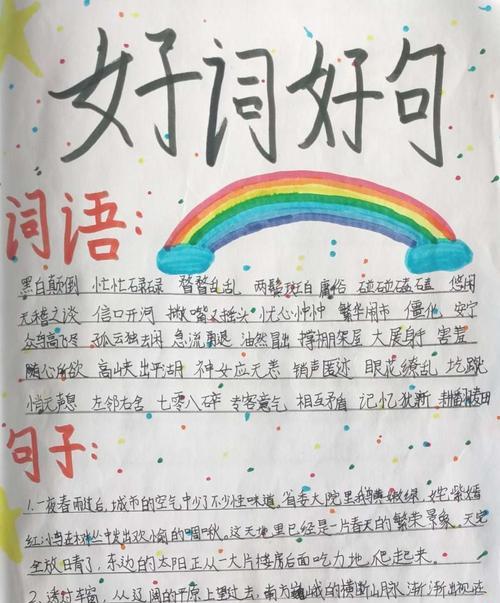 好词好句
词语:
黑白颠倒 忙忙碌碌 瞀瞀乱乱 两鬓斑白 庸俗 磕磕碰碰 悠闲
无稽之谈 信口开河 撇嘴又摇头 忧心忡忡 繁华闹市 僵化 安宁
众鸟高飞尽 孤云独去闲 急流勇退 油然冒出 撑棚架屋 大展身手 害羞
随心所欲 高峡出平湖 神女应无恙 销声匿迹 眼花缭乱
悄无声息 左邻右舍 七零八碎 相互矛盾 记忆犹新
句子:
1.一夜春雨过后,城市的空气中少了不少怪味道。省委大院里 嫩绿,姹紫嫣
红,小鸟在林丛中发出欢愉的啁啾。这天地里已经是一片春天的繁荣景象。天
全放日晴了,东边的太阳正从一大片楼房后面吃力地 爬起来。
2.透过车窗,从辽阔的平原上望过去,南方巍峨的横断山脉渐渐出现在